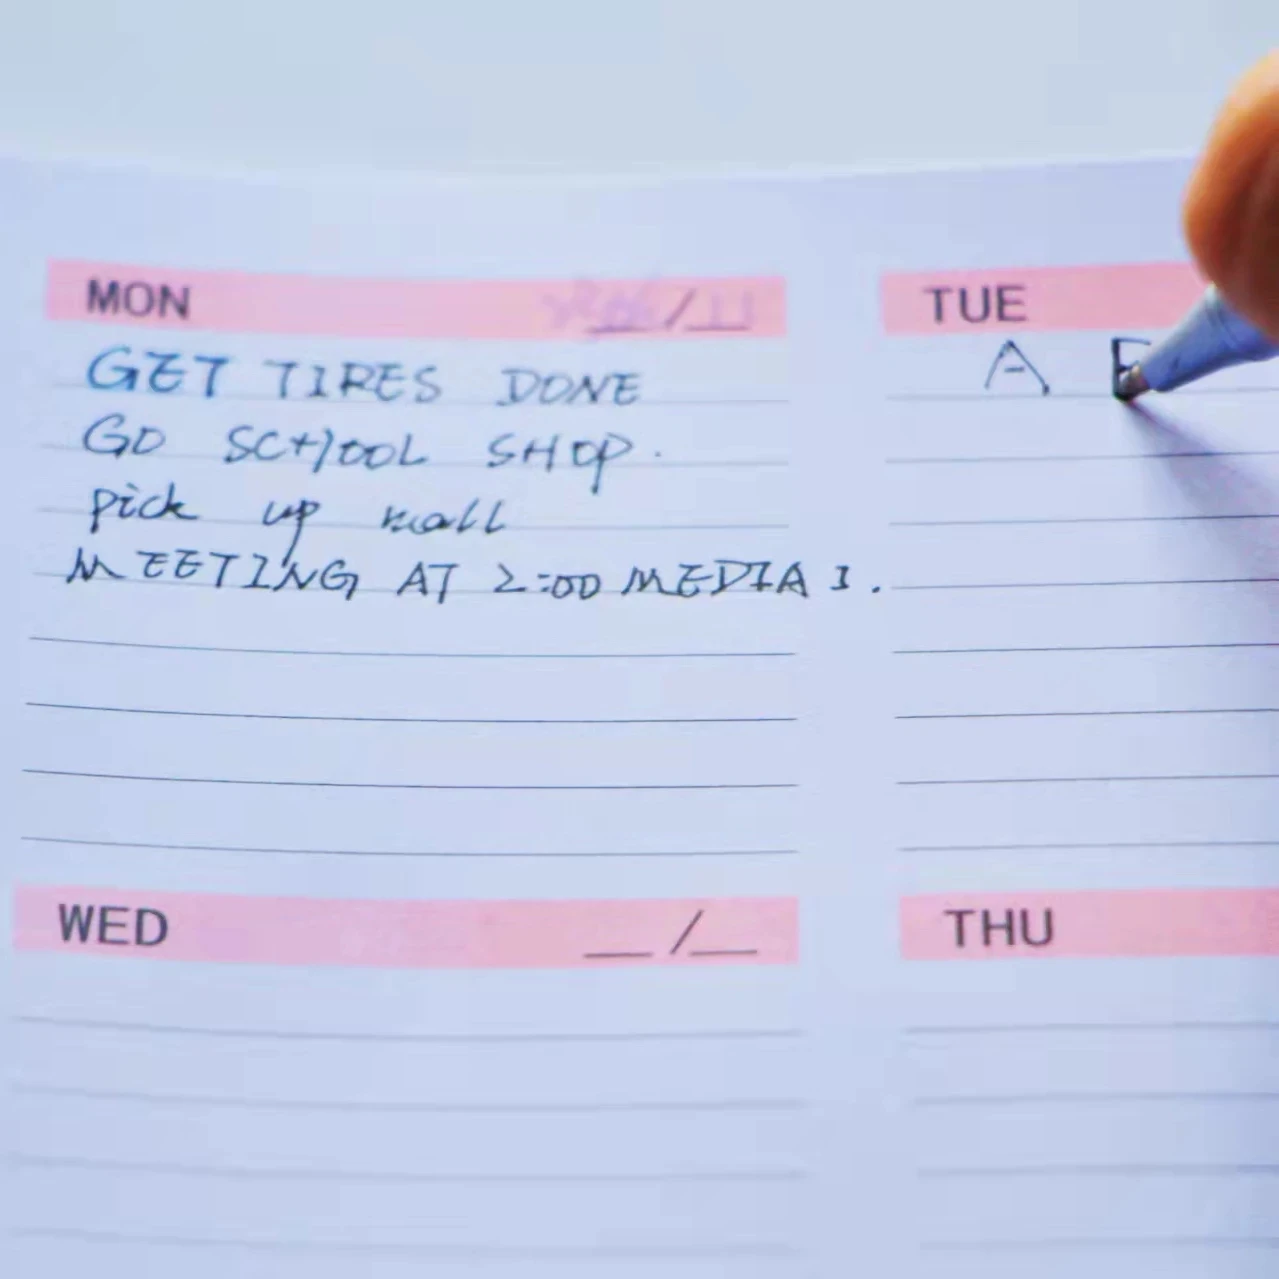 MON __/__
GET TIRES DONE
GO SCHOOL SHOP.
pick up mall
MEETING AT 2:00 MEDIA 1.
TUE
A
WED __/__
THU